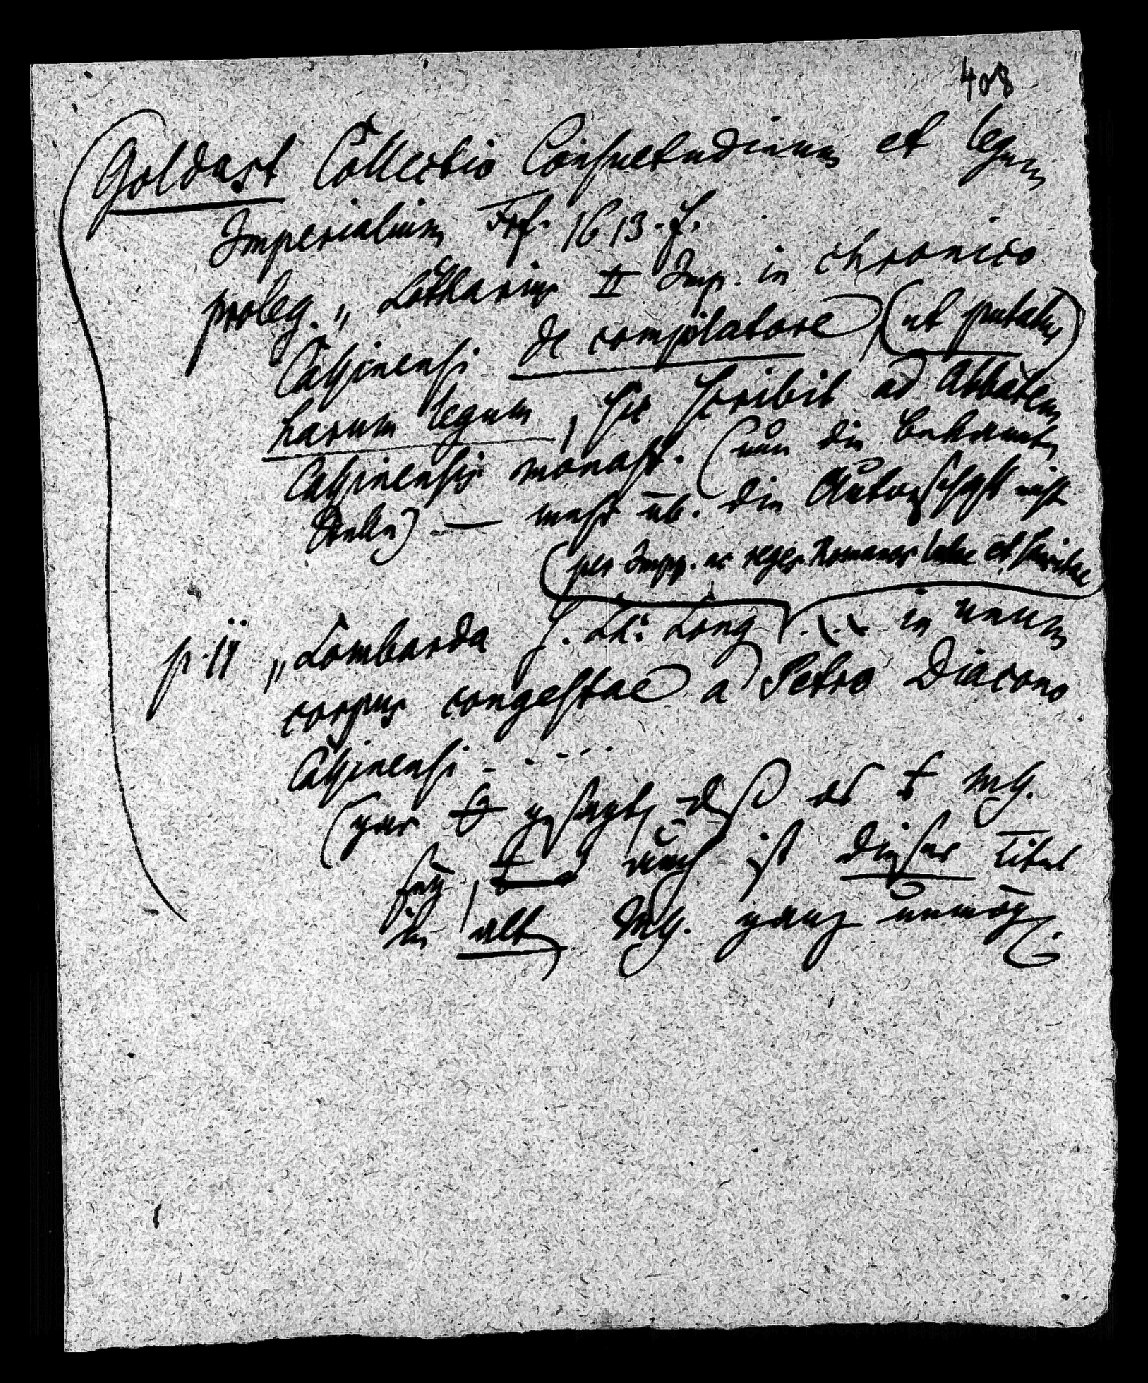 408
Goldast Collectio Consuetudinum et legum
Imperialium Frf. 1613. f.
proleg. „Lotharius II Imp. in chronico
Cassinensi de compilatore (ut putatur)
harum legum, sic scribit ad Abbatem
Cassinensis monast. (nun die bekannte
Stelle) — mehr üb. die Autorschaft nicht
(per Impp. ac reges Romanos latae et
p. 11 „Lombarda s. LL. Long. ... in unum
corpus congestae a Petro Diacono
Cassinensi - . - . .
(gar gesagt, daß es Ms.
sey, auch ist dieser Titel
in alt Ms. ganz unmögl.